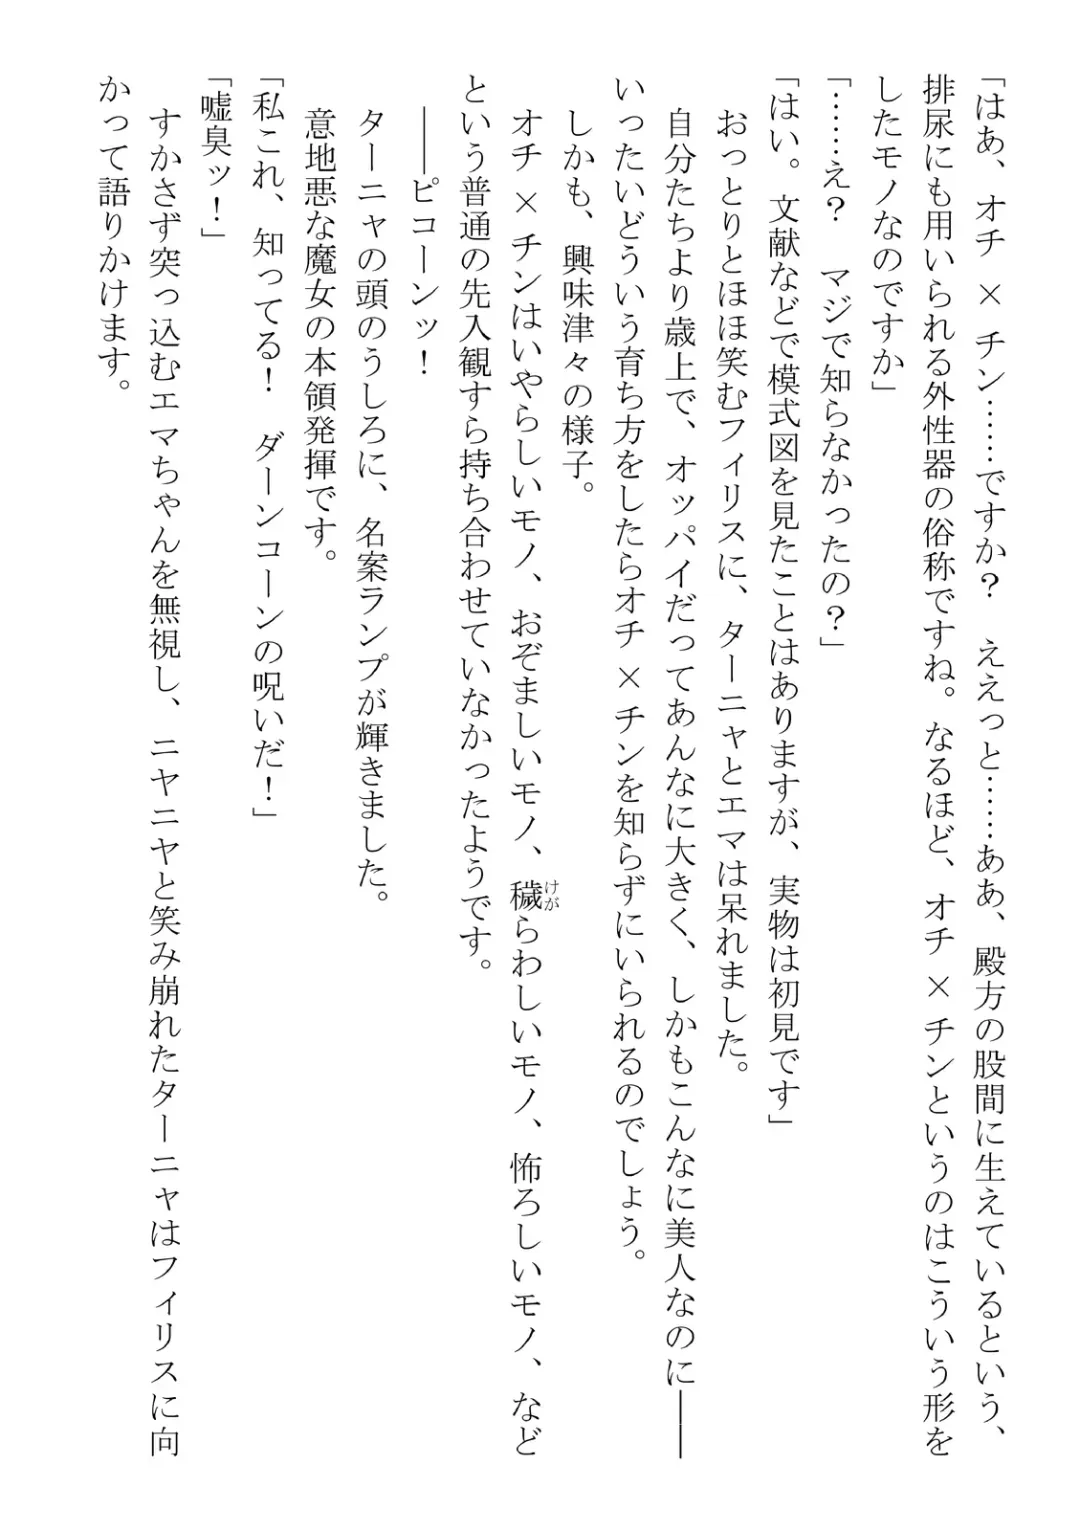 「はあ、オチ×チン……ですか？　ええっと……ああ、殿方の股間に生えているという、
排尿にも用いられる外性器の俗称ですね。なるほど、オチ×チンというのはこういう形を
したモノなのですか」
「……え？　マジで知らなかったの？」
「はい。文献などで模式図を見たことはありますが、実物は初見です」
　おっとりとほほ笑むフィリスに、ターニャとエマは呆れました。
　自分たちより歳上で、オッパイだってあんなに大きく、しかもこんなに美人なのに――
いったいどういう育ち方をしたらオチ×チンを知らずにいられるのでしょう。
　しかも、興味津々の様子。
　オチ×チンはいやらしいモノ、おぞましいモノ、穢らわしいモノ、怖ろしいモノ、など
けが
という普通の先入観すら持ち合わせていなかったようです。
　――ピコーンッ！
　ターニャの頭のうしろに、名案ランプが輝きました。
　意地悪な魔女の本領発揮です。
「私これ、知ってる！　ダーンコーンの呪いだ！」
「嘘臭ッ！」
　すかさず突っ込むエマちゃんを無視し、ニヤニヤと笑み崩れたターニャはフィリスに向
かって語りかけます。